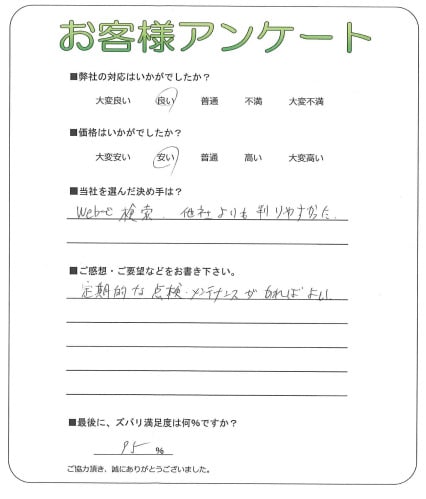 お客様アンケート
■弊社の対応はいかがでしたか？
大変良い 良い 普通 不満 大変不満
■価格はいかがでしたか？
大変安い 安い 普通 高い 大変高い
■当社を選んだ決め手は？
Webで検索、他社よりも判りやすかった。
■ご感想・ご要望などをお書き下さい。
定期的な点検・メンテナンスがあればよい。
■最後に、ズバリ満足度は何％ですか？
95 %
ご協力頂き、誠にありがとうございました。